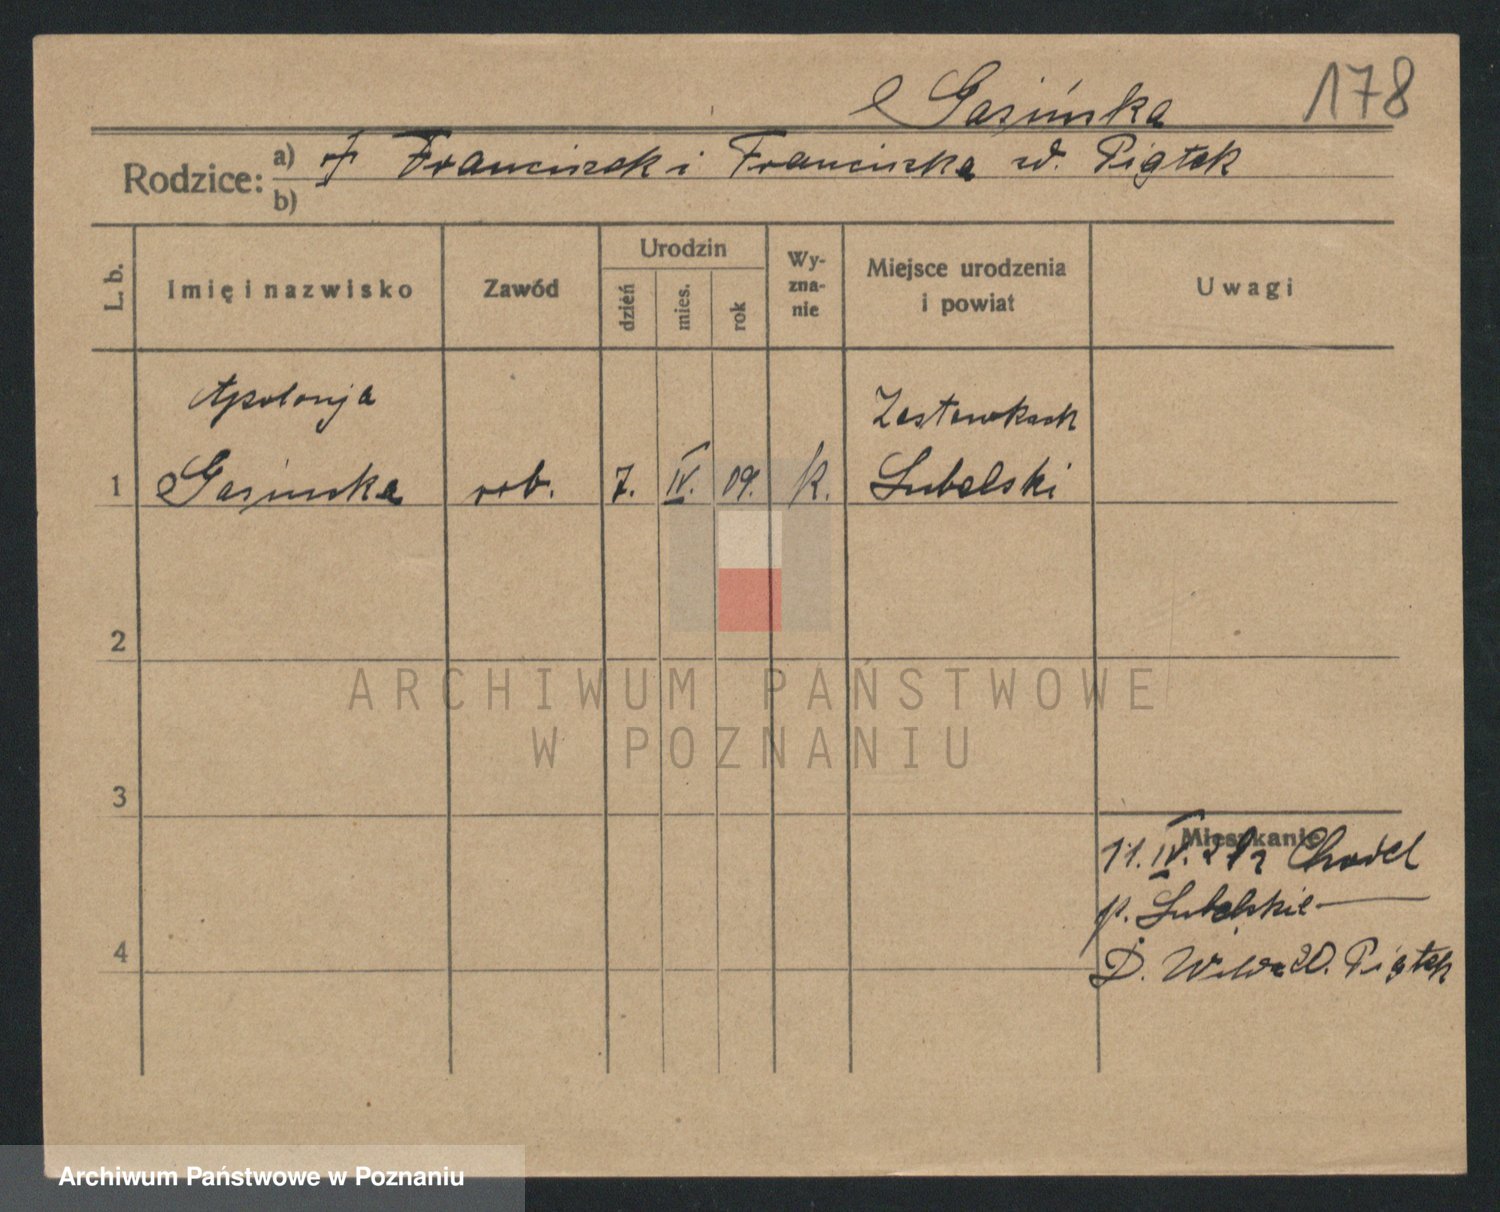 Gasińska 178
Rodzice: a) Franciszek i Franciszka zd. Piątek
b)
L. b.
Imię i nazwisko
Zawód
Urodzin
dzień
mies.
rok
Wy-
zna-
nie
Miejsce urodzenia
i powiat
Uwagi
Apolonja
1 Gasinska rob. 7. IV. 09. k. Lubelski
2
3
4
Mieszkanie
11. IV. Chodel
p. Lubelskie
D. Wilda 20. Piątek
ARCHIWUM PAŃSTWOWE
W POZNANIU
Archiwum Państwowe w Poznaniu